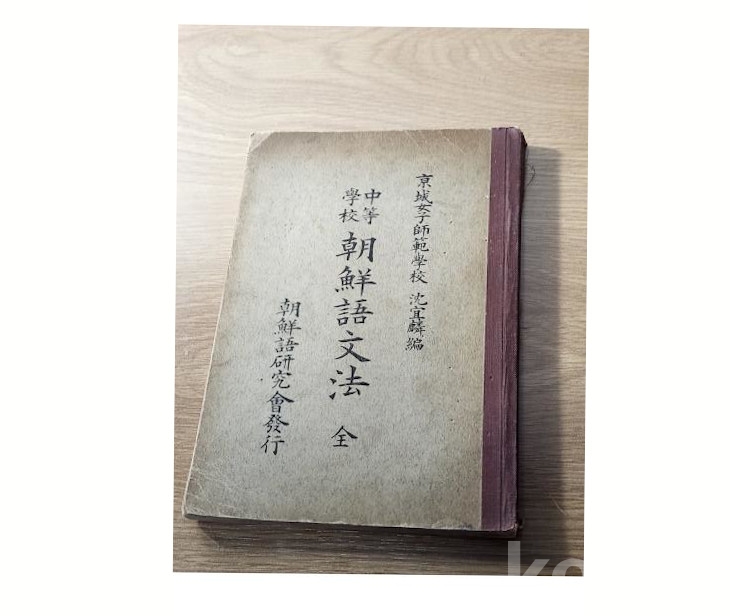 京城女子師範學校 沈宜麟編
中等
學校
朝鮮語文法 全
朝鮮語研究會發行